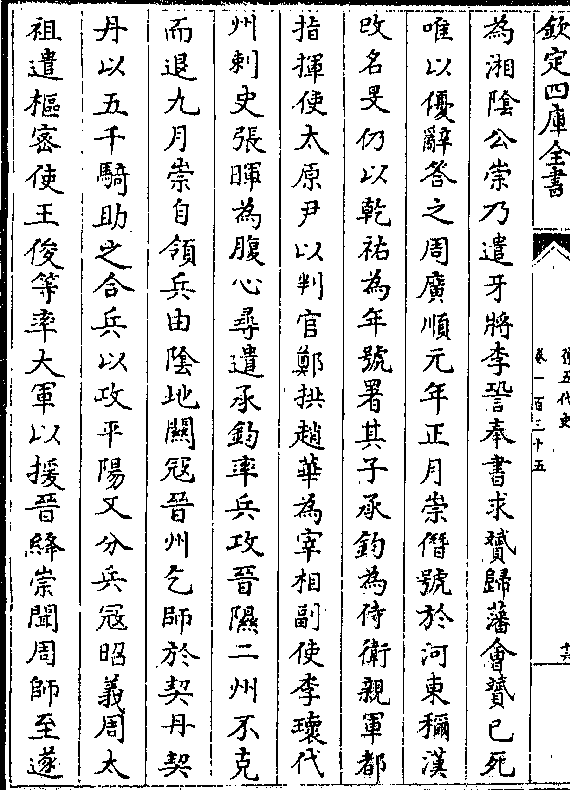 欽定四庫全書
舊五代史
卷一百三十五
十六
為湘陰公崇乃遣牙將李𧪿奉書求贇歸藩會贇已死
唯以優辭答之周廣順元年正月崇僭號於河東稱漢
改名旻仍以乾祐為年號署其子承鈞為侍衛親軍都
指揮使太原尹以判官鄭拱趙華為宰相副使李瓌代
州刺史張暉為腹心尋遣承鈞率兵攻晉隰二州不克
而退九月崇自領兵由陰地關冦晉州乞師於契丹契
丹以五千騎助之合兵以攻平陽又分兵冦昭義周太
祖遣樞宻使王俊等率大軍以援晉絳崇聞周師至遂